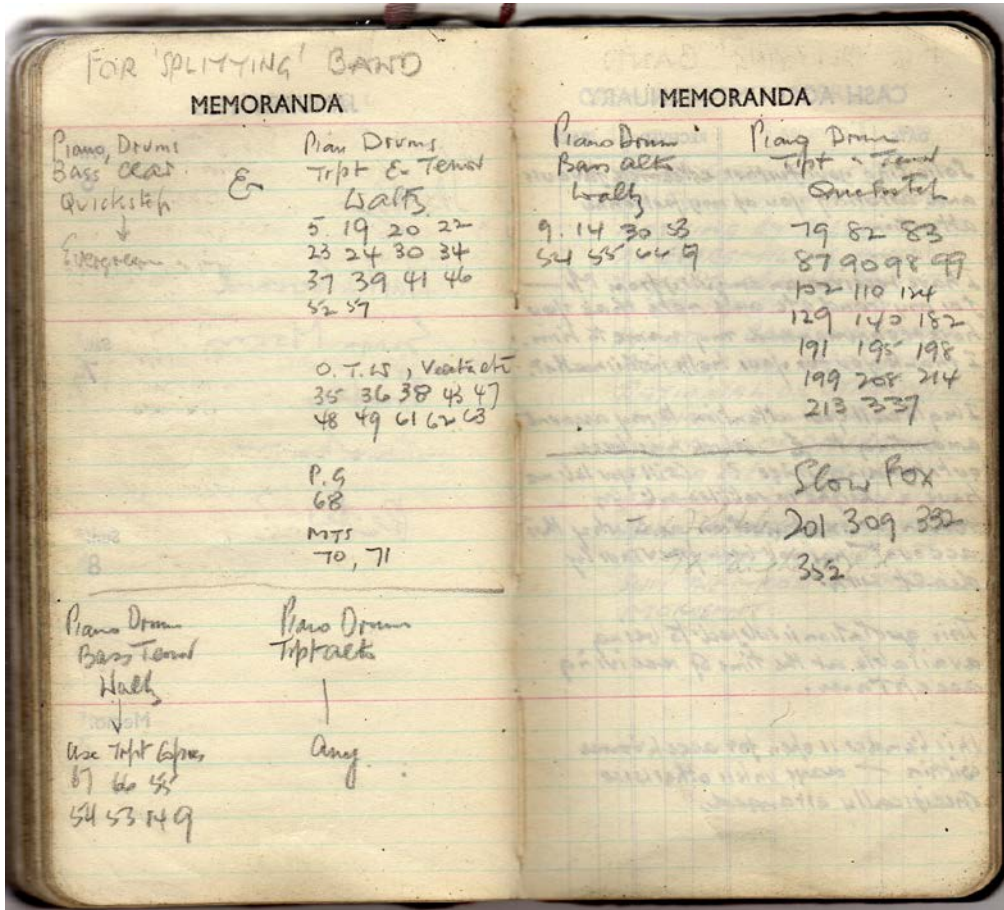 FOR 'SPLITTING' BAND
MEMORANDA
Piano, Drums
Bass Clar.
Quickstep
Evergreen
&
Pian Drums
Trpt & Tenor
Waltz
5. 19 20 22
23 24 30 34
37 39 41 46
52 57
O.T.W,
35 36 38 43 47
48 49 61 62 63
P.G
68
MTS
70, 71
Piano Drum
Bass Tenor
Waltz
Use Trpt
67 66 55
54 53 14 9
Piano Drum
Trpt alto
any
MEMORANDA
Piano Drum
Bass alto
Waltz
9. 14 30 53
54 55 66
Piano Drum
Trpt Tenor
Quickstep
79 82 83
87 90 98 99
102 110 124
129 140 182
191 195 198
199 208 214
213 337
Slow Fox
201 309 332
352